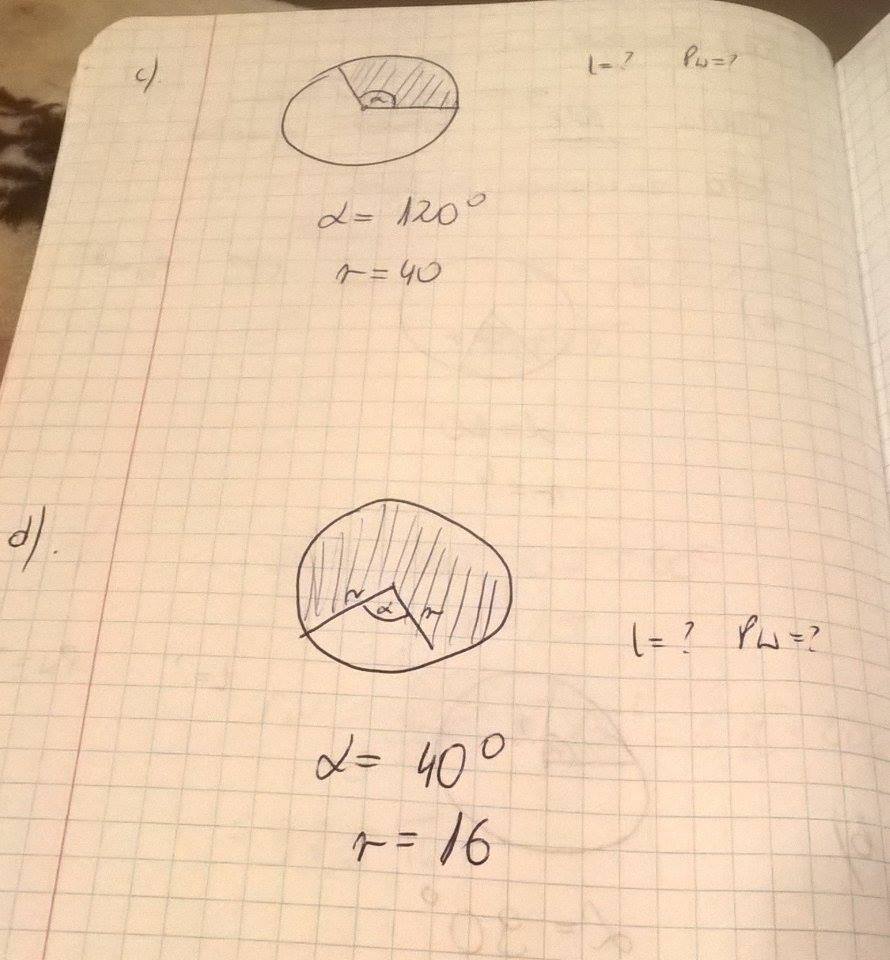 c). l=? Pw=?
α
α= 120°
r=40
d). r α r l=? Pw=?
α= 40°
r= 16